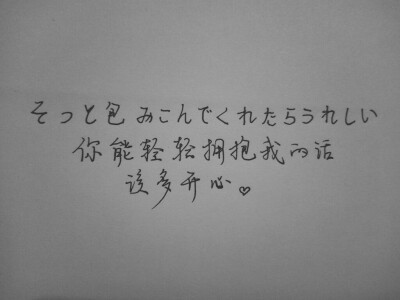 そっと包みこんでくれたらうれしい
你能轻轻拥抱我的话
该多开心♥